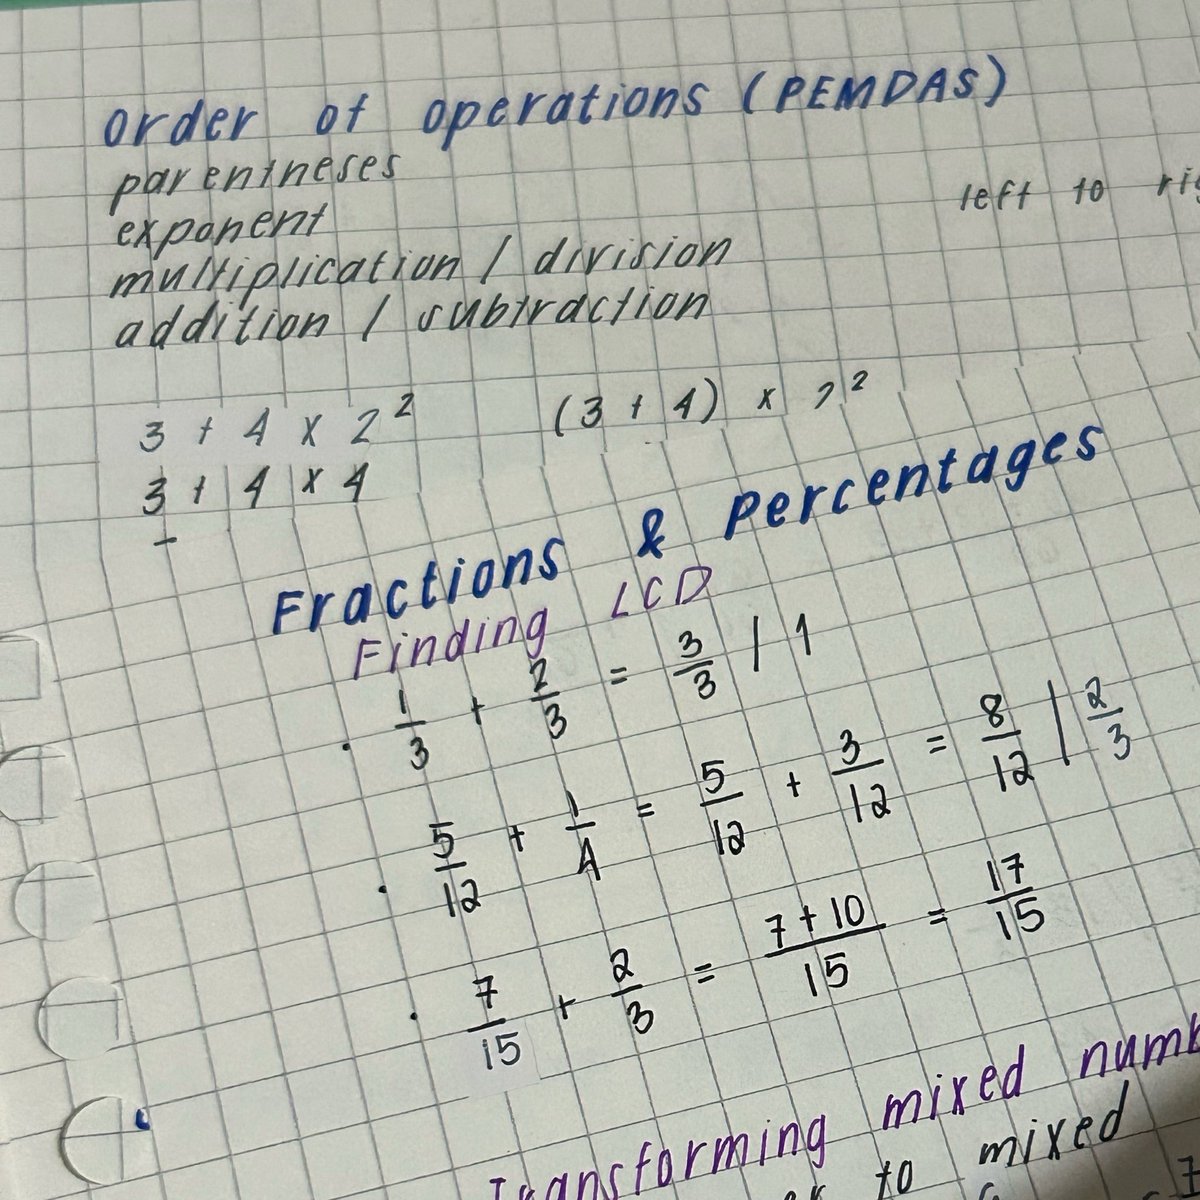 order of operations (PEMDAS)
parentheses
exponent
left to
multiplication / division
addition / subtraction
3 + 4 x 2²
(3 + 4) x 2²
3 + 4 x 4
Fractions & percentages
Finding LCD
· 1/3 + 2/3 = 3/3 | 1
· 5/12 + 1/4 = 5/12 + 3/12 = 8/12 | 2/3
· 7/15 + 2/3 = 7+10/15 = 17/15
Transforming mixed
to mixed
7